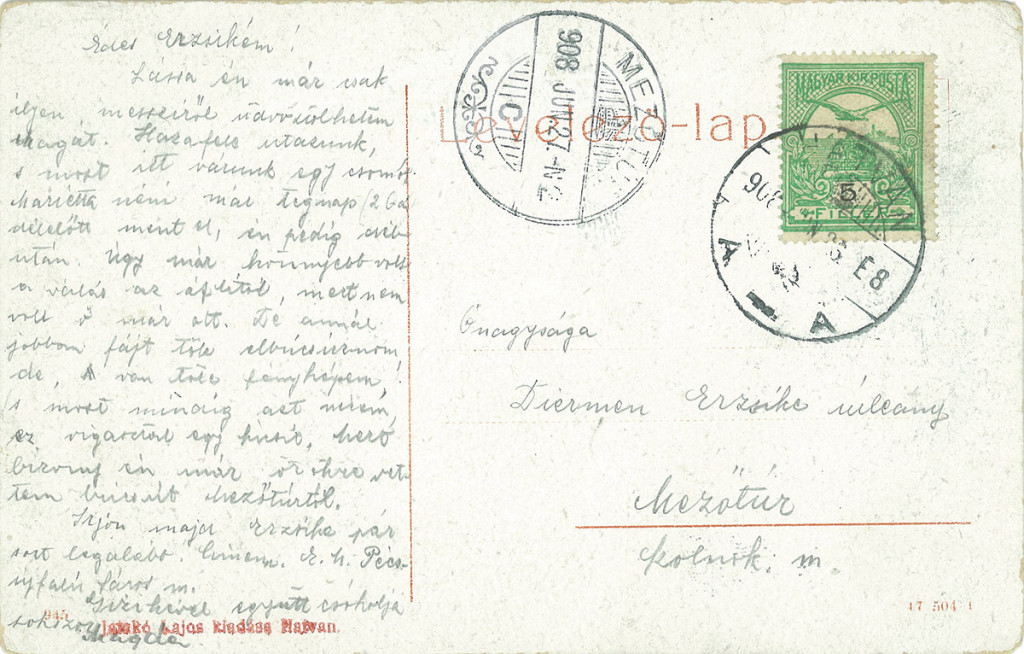 Édes Erzsikém!
Lássa én már csak
ilyen messziről üdvözölhetem
magát. Hazafelé utazunk,
s most itt várunk egy csomót
Mariétta néni már tegnap (26án
délelőtt ment el, én pedig déb-
után. Úgy már könnyebb volt
a válás az ápitól, mert nem
volt ő már ott. De annál
jobban fájt tőle elbúcsúznom
de, van tőle fényképem,!
s most mindig azt nézem,
ez vigasztal egy kicsit, mert
bizony én már örökre vet-
tem búcsút Mezőtúrtól.
Írjon majd Erzsike pár
sort legalább. Címem. E. h. Pécs-
újfalu Sáros m.
Gizikével együtt csókolja
sokszor Magda
945
Jatskó Lajos kiadása Hatvan.
Levelező-lap
MEZŐTÚR
908 JUN 27 N 2
C
MAGYAR KIR. POSTA
5
FILLÉR
HATVAN
908 26 E8
A A
Őnagysága
Diermen Erzsike úrleány
Mezőtúr
Szolnok. m.
17 504 1